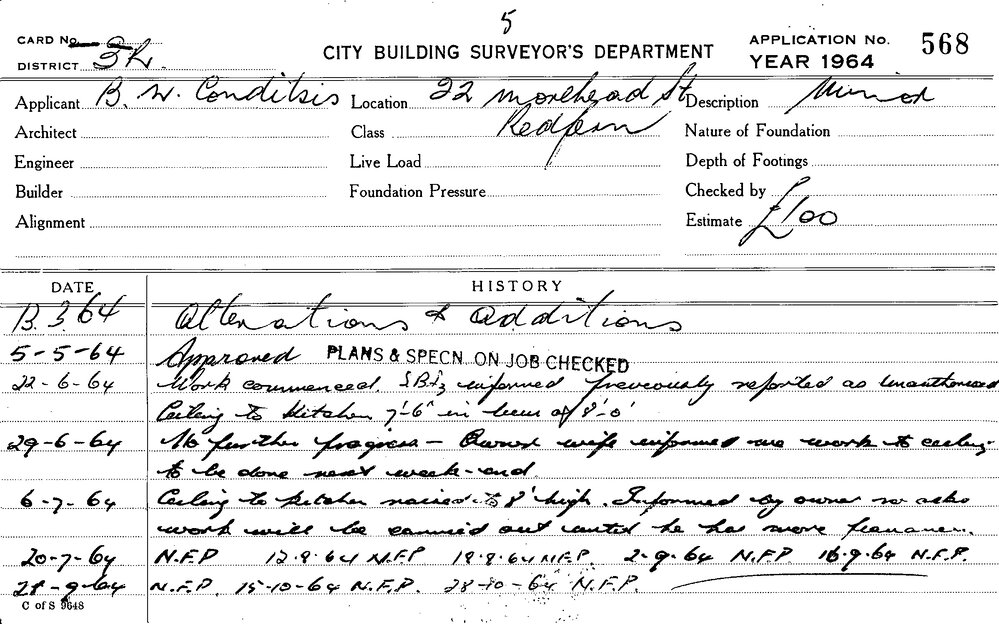 5
CARD No.
DISTRICT SR.
CITY BUILDING SURVEYOR'S DEPARTMENT
APPLICATION No. 568
YEAR 1964
Applicant B. W. Conditsis Location 22 Morehead St Description Minor
Redfern
Architect Class Nature of Foundation
Engineer Live Load Depth of Footings
Builder Foundation Pressure Checked by
Alignment Estimate £100
DATE HISTORY
13.3.64 Alterations & additions
5-5-64 Approved PLANS & SPECN. ON JOB CHECKED
22-6-64 Work commenced informed previously reported as unauthorised
Ceiling to Kitchen 7'-6" in lieu of 8'-0"
29-6-64 No further progress - Owner wife informed me work to ceiling
to be done next week-end.
6-7-64 Ceiling to kitchen raised to 8' high. Informed by owner no
work will be carried out until he has more finance.
20-7-64 N.F.P 12-8-64 N.F.P 19-8-64 N.F.P. 2-9-64 N.F.P 16-9-64 N.F.P.
28-9-64 N.F.P. 15-10-64 N.F.P. 28-10-64 N.F.P.
C of S 9648